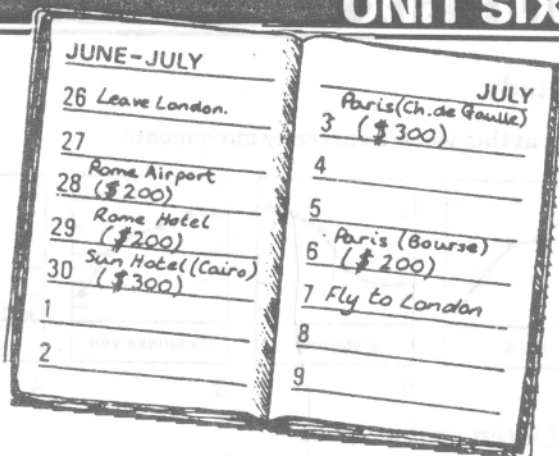 UNIT SIX
JUNE-JULY
26 Leave London.
27
Rome Airport
28 ($200)
Rome Hotel
29 ($200)
Sun Hotel (Cairo)
30 ($300)
1
2
JULY
Paris (Ch. de Gaulle)
3 ($300)
4
5
Paris (Bourse)
6 ($200)
7 Fly to London
8
9